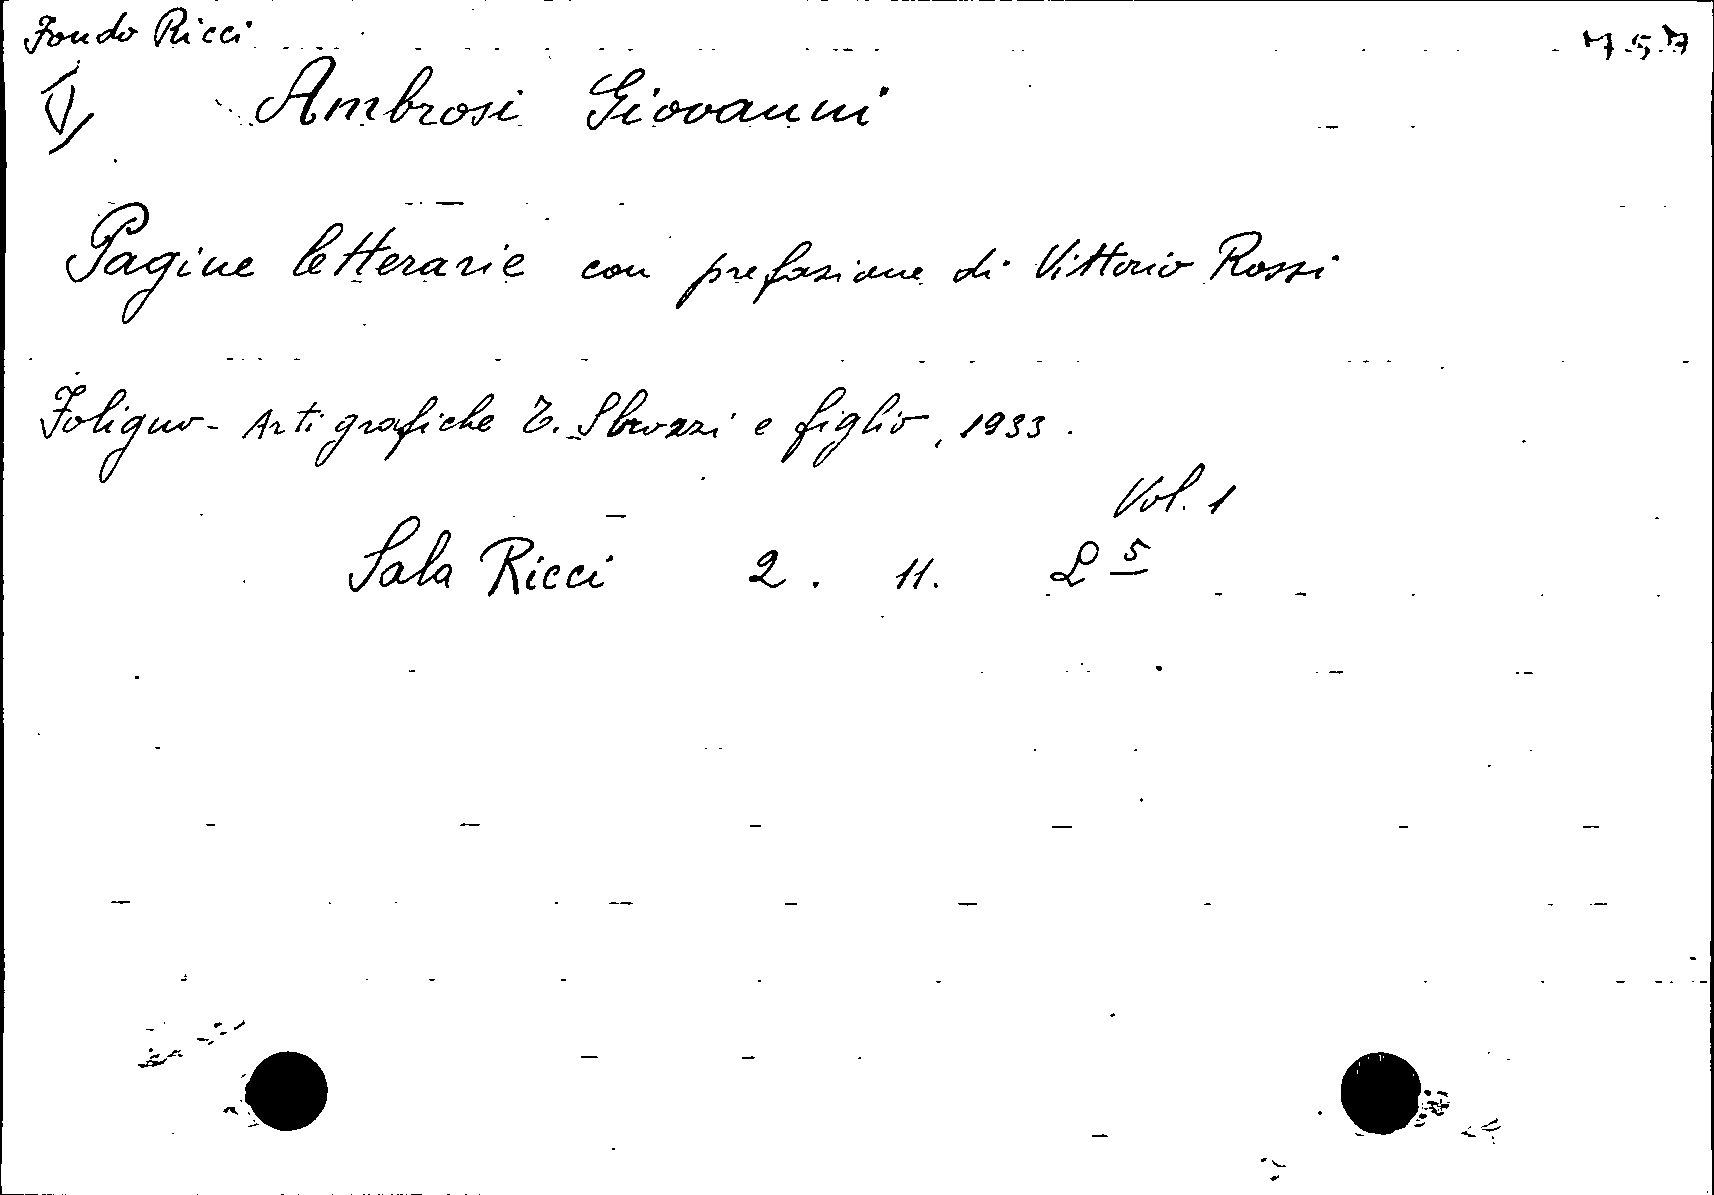 Fondo Ricci
757
V
Ambrosi Giovanni
Pagine letterarie con prefazione di Vittorio Rossi
Foligno - Arti grafiche T. Sbrozzi e figlio, 1933.
Vol. 1
Sala Ricci 2. 11. L 5